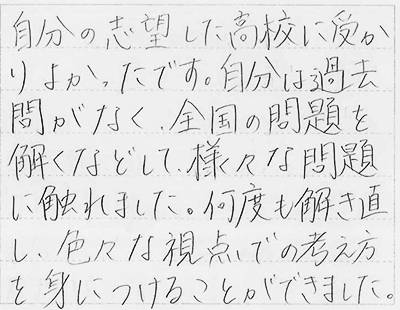 自分の志望した高校に受か
りよかったです。自分は過去
問がなく、全国の問題を
解くなどして、様々な問題
に触れました。何度も解き直
し、色々な視点での考え方
を身につけることができました。